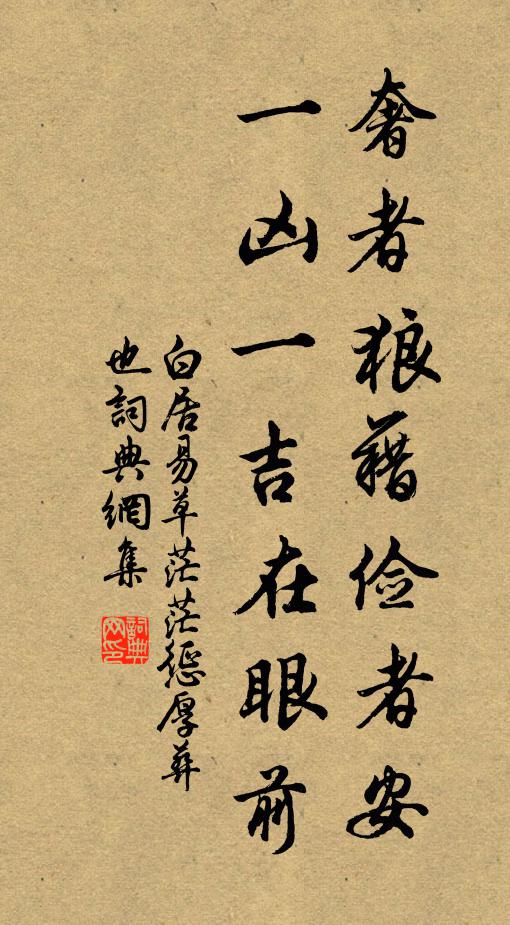 奢者狼藉俭者安
一凶一吉在眼前
白居易草茫茫惩厚葬
也詞典網集
詞典网印